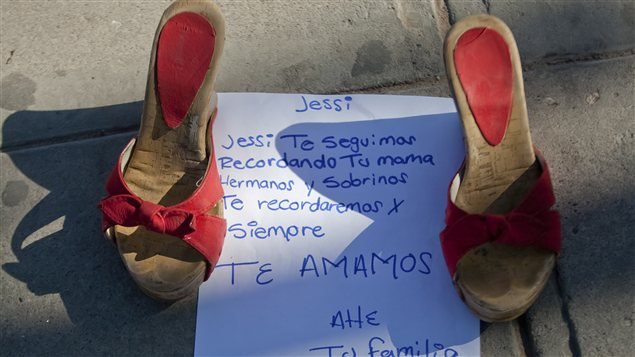 Jessi
Jessi Te Seguimos
Recordando Tu mama
Hermanos y Sobrinos
Te recordaremos X
Siempre
TE AMAMOS
Att
Tu familia